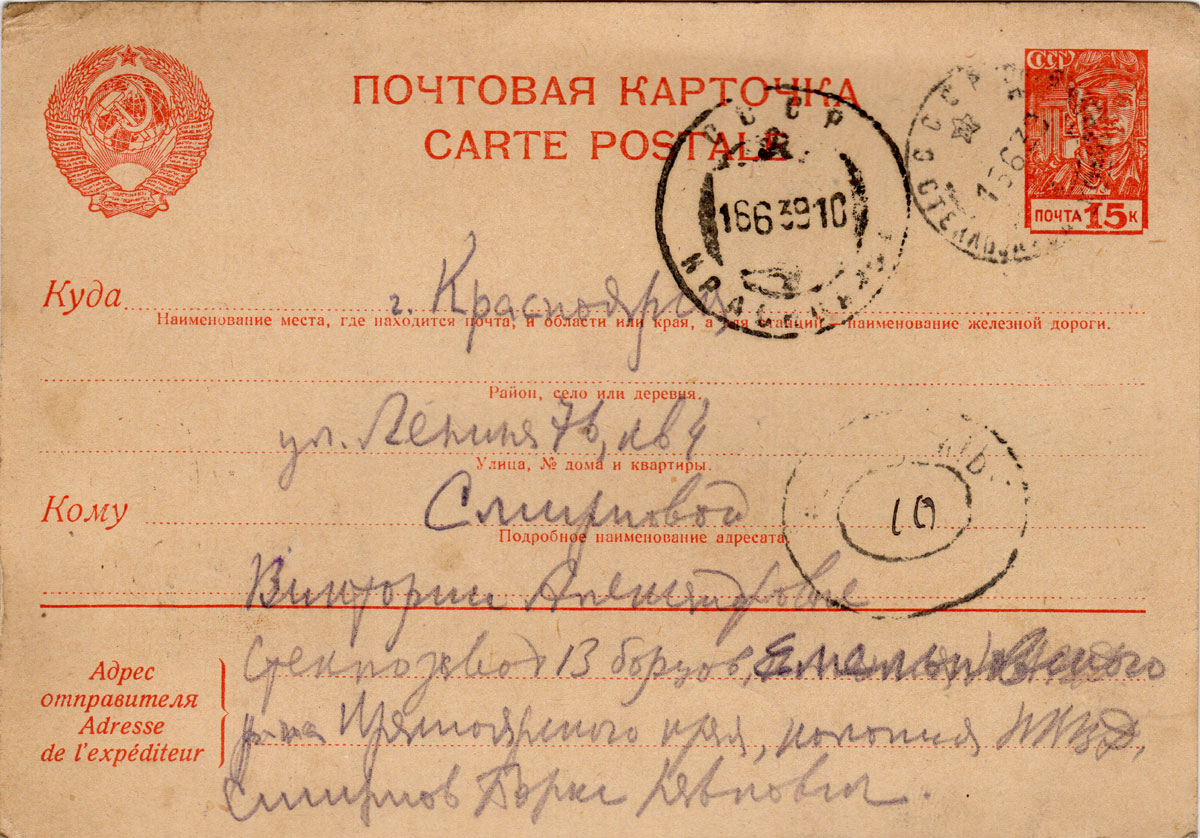 ПОЧТОВАЯ КАРТОЧКА
CARTE POSTALE
СССР
ПОЧТА 15 К
СССР
16 6 39 10
Куда г. Красноярск
Наименование места, где находится почта, и области или края, а для станций — наименование железной дороги.
Район, село или деревня.
ул. Ленина 76, кв 4
Улица, № дома и квартиры.
Кому Смирновой
Подробное наименование адресата
10
Виктории Александровне
Адрес отправителя
Adresse de l'expéditeur
Стеклозавод 13 борцов, Емельяновского
р-на Красноярского края, колония НКВД,
Смирнов Борис Павлович.